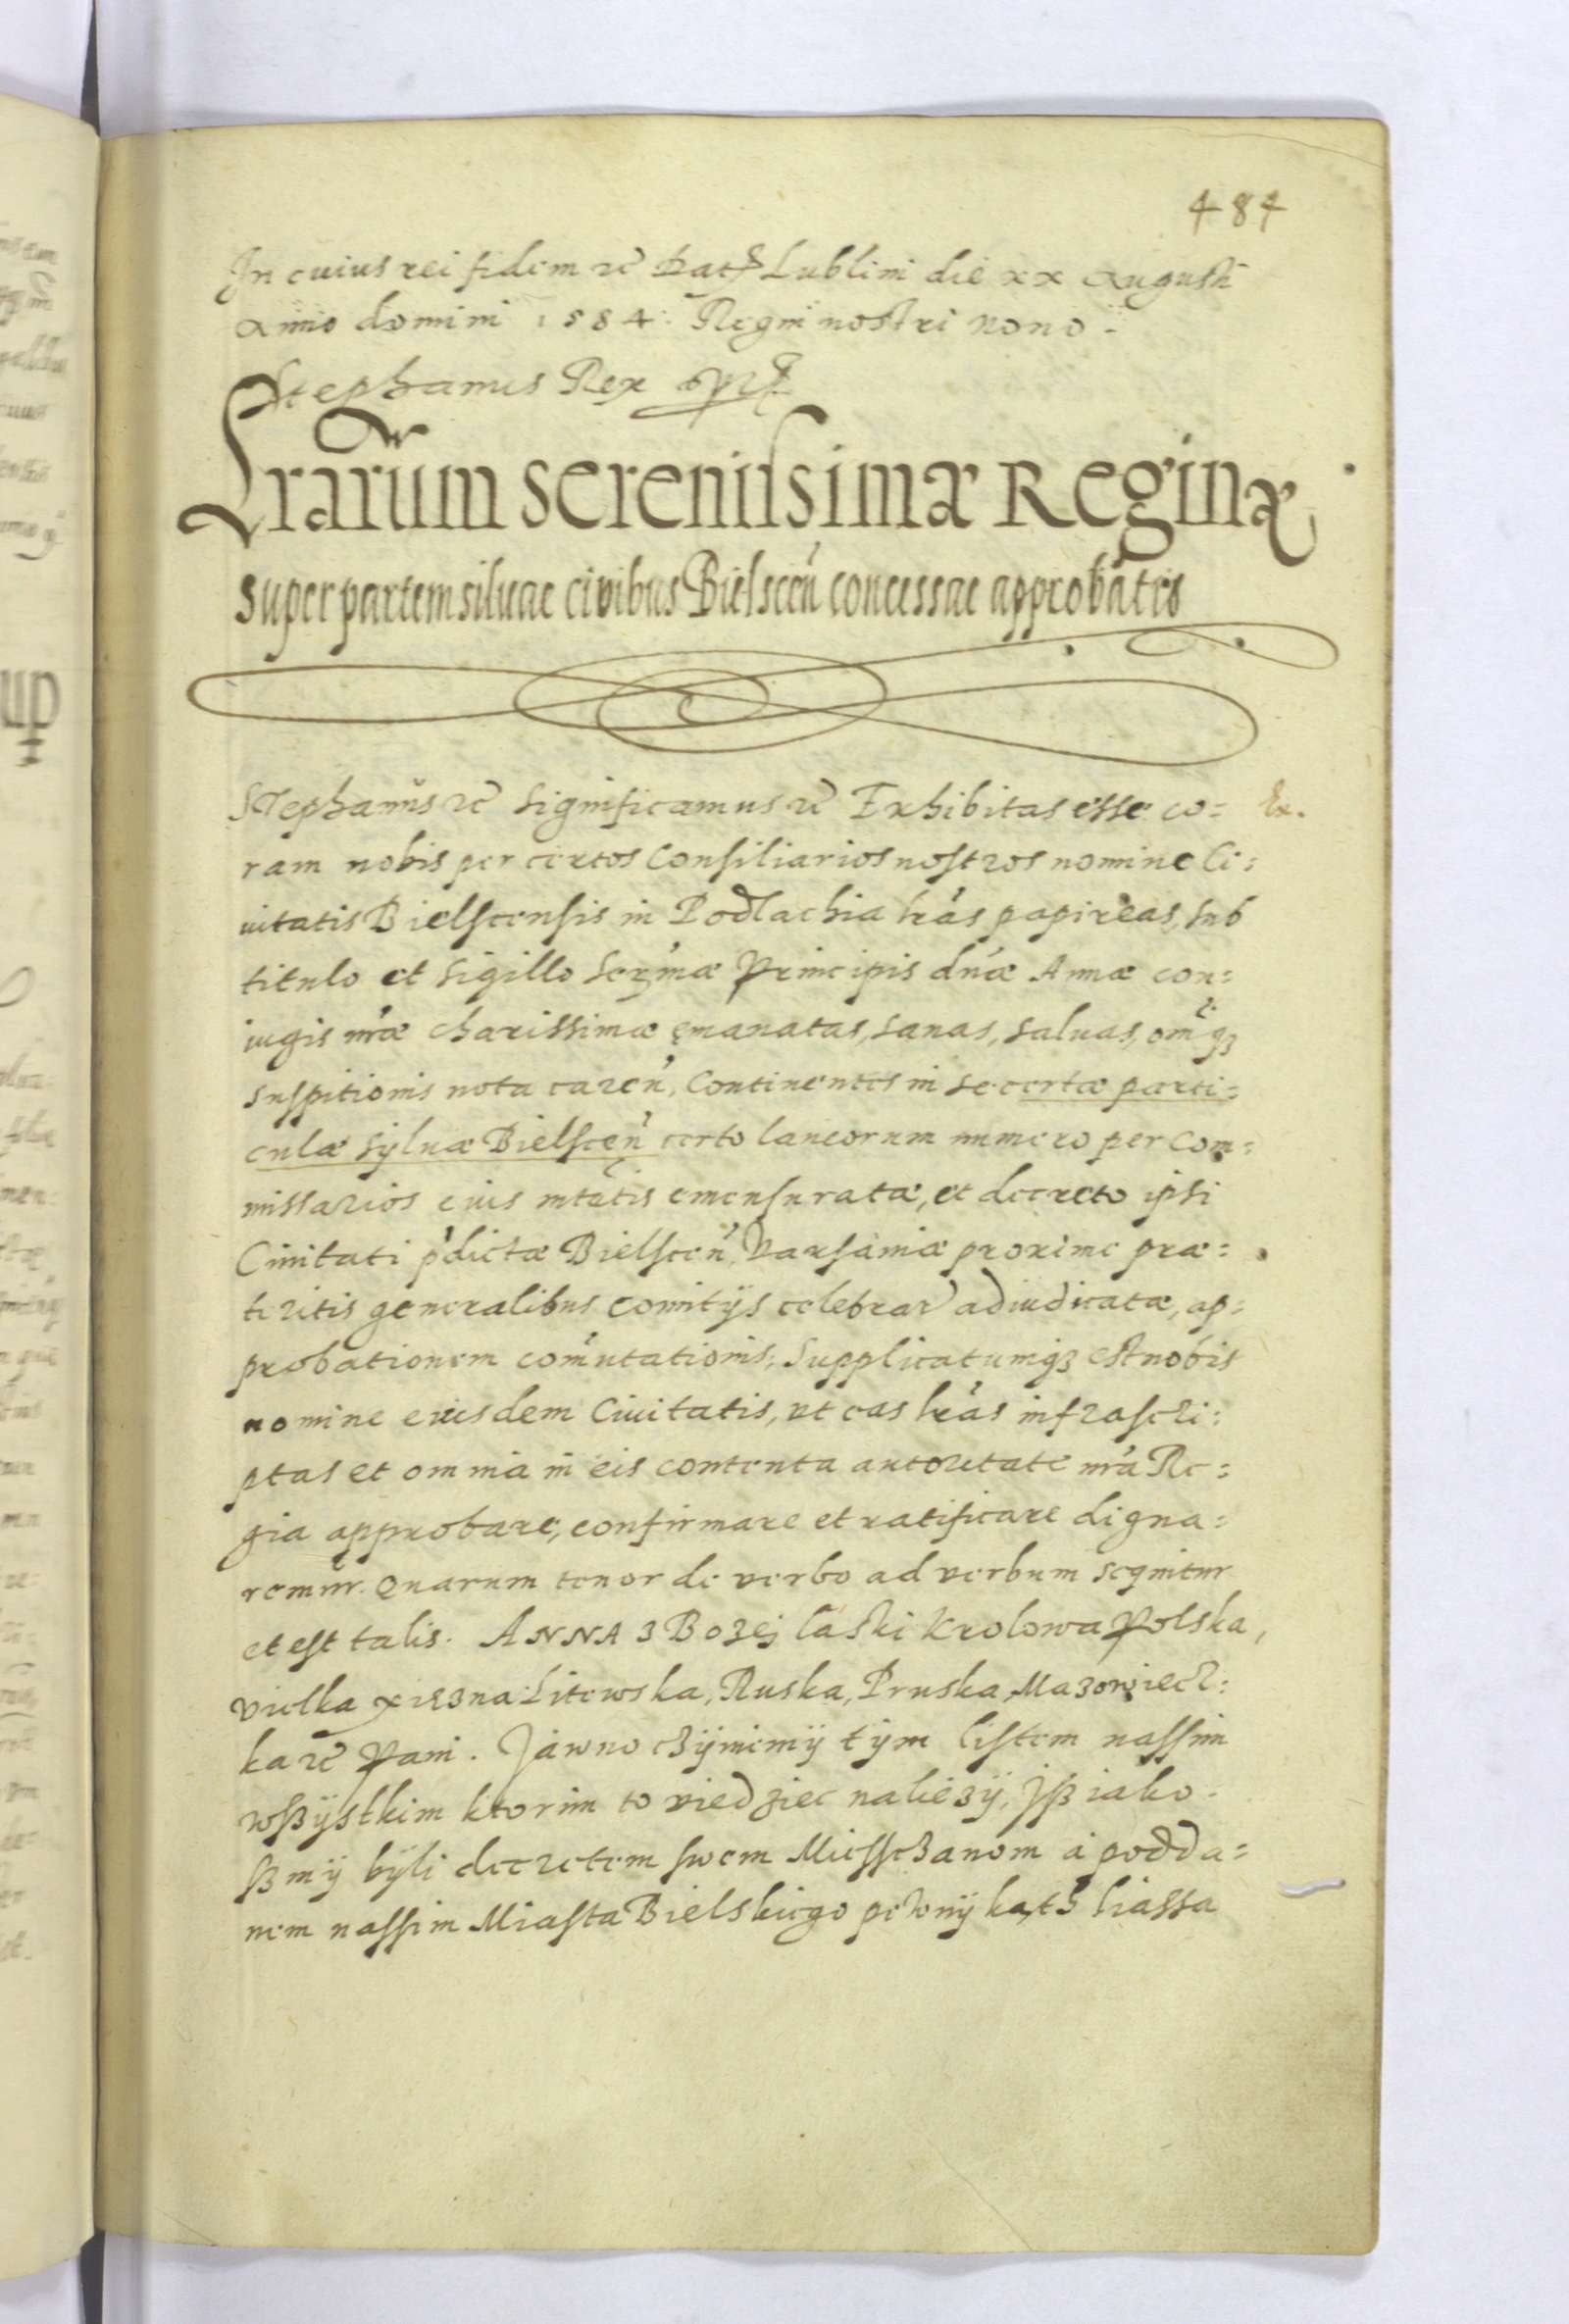 484
In cuius rei fidem etc̃ Datĩ Lublini die xx Augusti
Anno domini 1584. Regni nostri nono.
Stephanus Rex
Lrarum Serenissimæ Reginæ
super partem siluae civibus Bielscen̄ concessae approbatio
Stephanus etc̃ Significamus etc̃ Exhibitas esse co=
Ex.
ram nobis per certos Consiliarios nostros nomine Ci=
uitatis Bielscensis in Podlachia lr̃as papireas, sub
titulo et sigillo Ser̃mæ Principis dn̄æ Annæ con=
iugis nr̃æ charissimæ emanatas, sanas, saluas, omiq3
suspitionis nota caren̄, Continentes in se certæ parti=
culæ syluæ Bielscen̄ certo laneorum numero per Com=
missarios eius mtatis emensuratæ, et decreto ipsi
Ciuitati p̃dictæ Bielscen̄, Varsauiæ proxime præ=
teritis generalibus comitijs celebrat̃ adiudicatæ, ap=
probationem com̃utationis, Supplicatumq3 est nobis
nomine eiusdem Ciuitatis, vt eas lr̃as infrascri=
ptas et omnia in eis contenta autoritate nr̃a Re=
gia approbare, confirmare et ratificare digna=
remur. Quarum tenor de verbo ad verbum sequitur
et est talis. ANNA z Bozej łaski Krolowa Polska,
vielka xięzna Litewska, Ruska, Pruska, Mazowieck=
ka etc̃ Pani. Jawno czÿnimÿ tÿm listem nassim
wßÿstkim ktorim to viedziec naliezÿ, Jß iako=
ßmÿ bÿli decretem swem Miessczanom a podda=
nem nassim Miasta Bielskiego pewnÿ kąth liassa